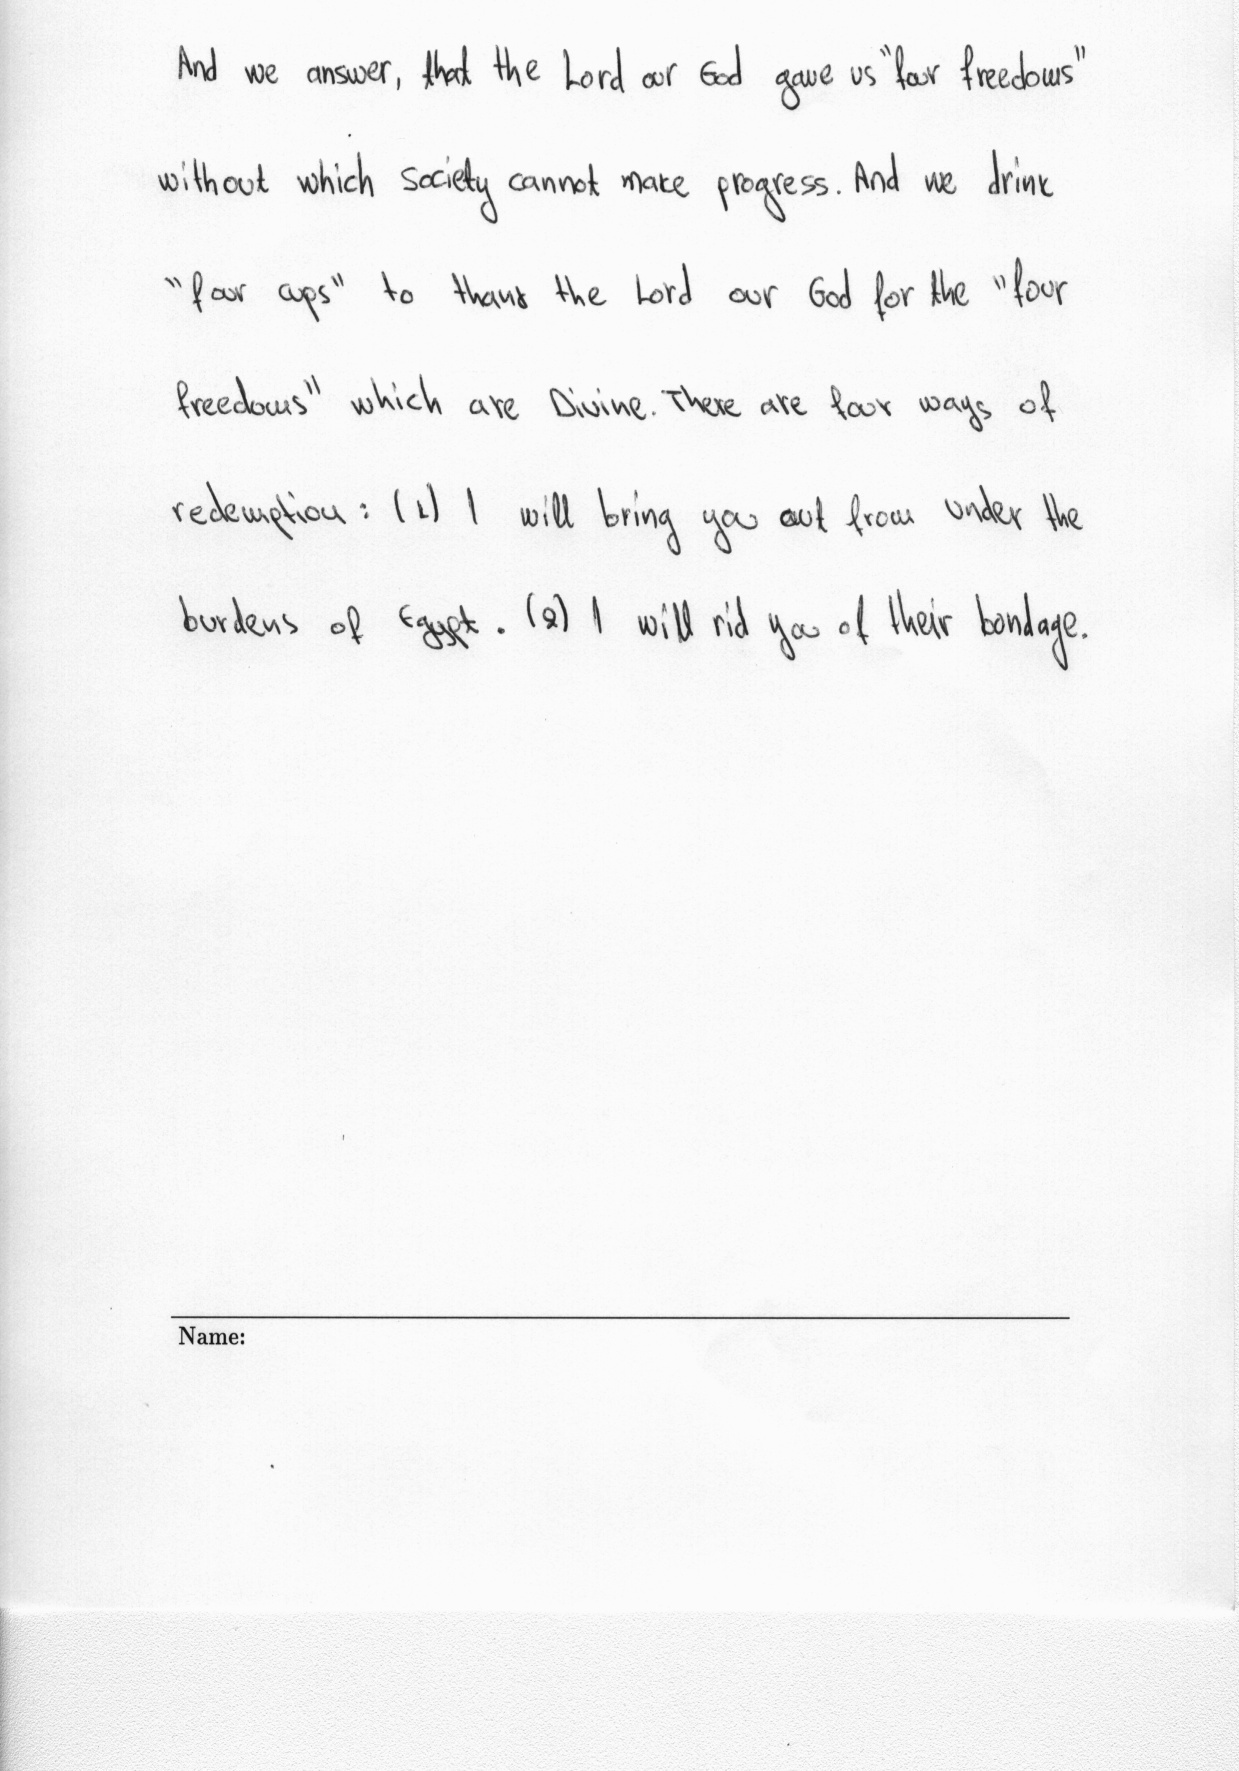 And we answer, that the Lord our God gave us "four freedoms"
without which society cannot make progress. And we drink
"four cups" to thank the Lord our God for the "four
freedoms" which are Divine. There are four ways of
redemption: (1) I will bring you out from under the
burdens of Egypt. (2) I will rid you of their bondage.
Name: